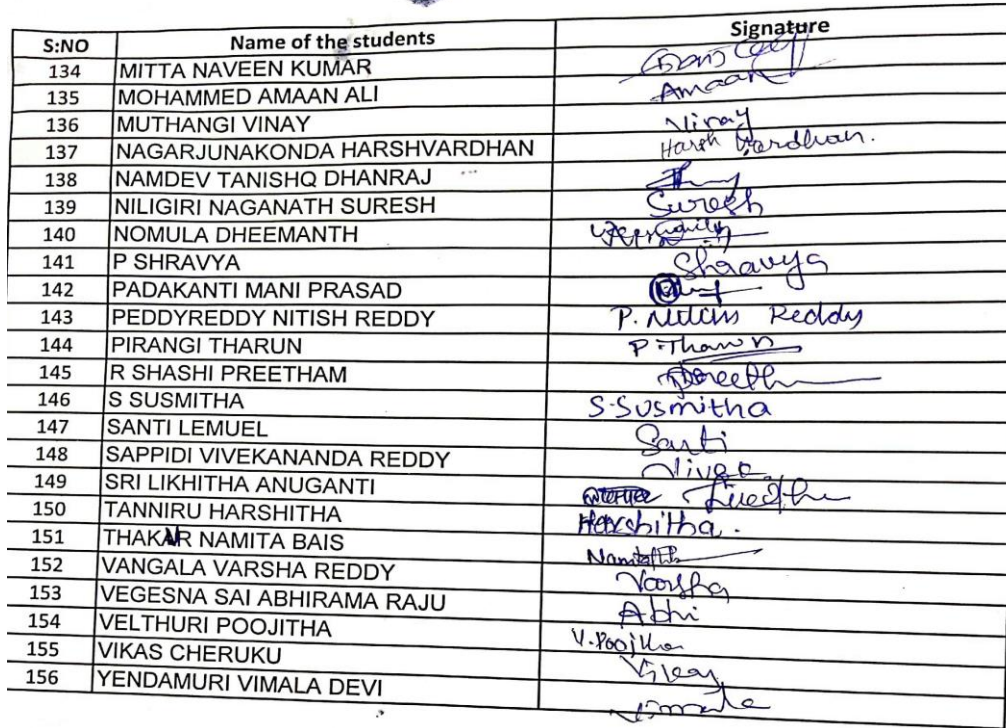 S:NO Name of the students Signature
134 MITTA NAVEEN KUMAR
135 MOHAMMED AMAAN ALI Amaan
136 MUTHANGI VINAY Vinay
137 NAGARJUNAKONDA HARSHVARDHAN Harsh Vardhan.
138 NAMDEV TANISHQ DHANRAJ
139 NILIGIRI NAGANATH SURESH Suresh
140 NOMULA DHEEMANTH
141 P SHRAVYA Shravya
142 PADAKANTI MANI PRASAD
143 PEDDYREDDY NITISH REDDY P. Nitish Reddy
144 PIRANGI THARUN P. Tharun
145 R SHASHI PREETHAM
146 S SUSMITHA S.Susmitha
147 SANTI LEMUEL Santi
148 SAPPIDI VIVEKANANDA REDDY
149 SRI LIKHITHA ANUGANTI
150 TANNIRU HARSHITHA Harshitha.
151 THAKAR NAMITA BAIS
152 VANGALA VARSHA REDDY Varsha
153 VEGESNA SAI ABHIRAMA RAJU Abhi
154 VELTHURI POOJITHA V.Poojitha
155 VIKAS CHERUKU
156 YENDAMURI VIMALA DEVI Vimala